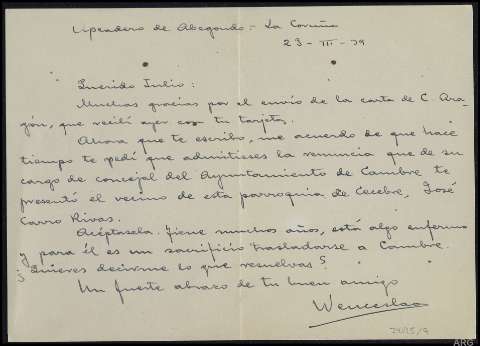 Apeadero de Abegondo - La Coruña
23 - III - 39
Querido Julio:
Muchas gracias por el envio de la carta de C. Ara-
gón, que recibí ayer con tu tarjeta.
Ahora que te escribo, me acuerdo de que hace
tiempo te pedí que admitieses la renuncia que de su
cargo de concejal del Ayuntamiento de Cambre te
presentó el vecino de esta parroquia de Cecebre, José
Carro Rivas.
Acéptasela. Tiene muchos años, está algo enfermo
y para él es un sacrificio trasladarse a Cambre.
¿Quieres decirme lo que resuelvas?
Un fuerte abrazo de tu buen amigo
Wenceslao
ARG